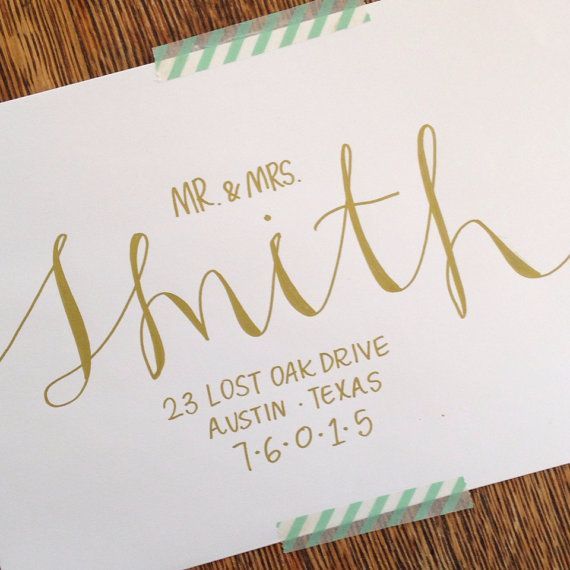 MR. & MRS.
Smith
23 LOST OAK DRIVE
AUSTIN · TEXAS
7·6·0·1·5